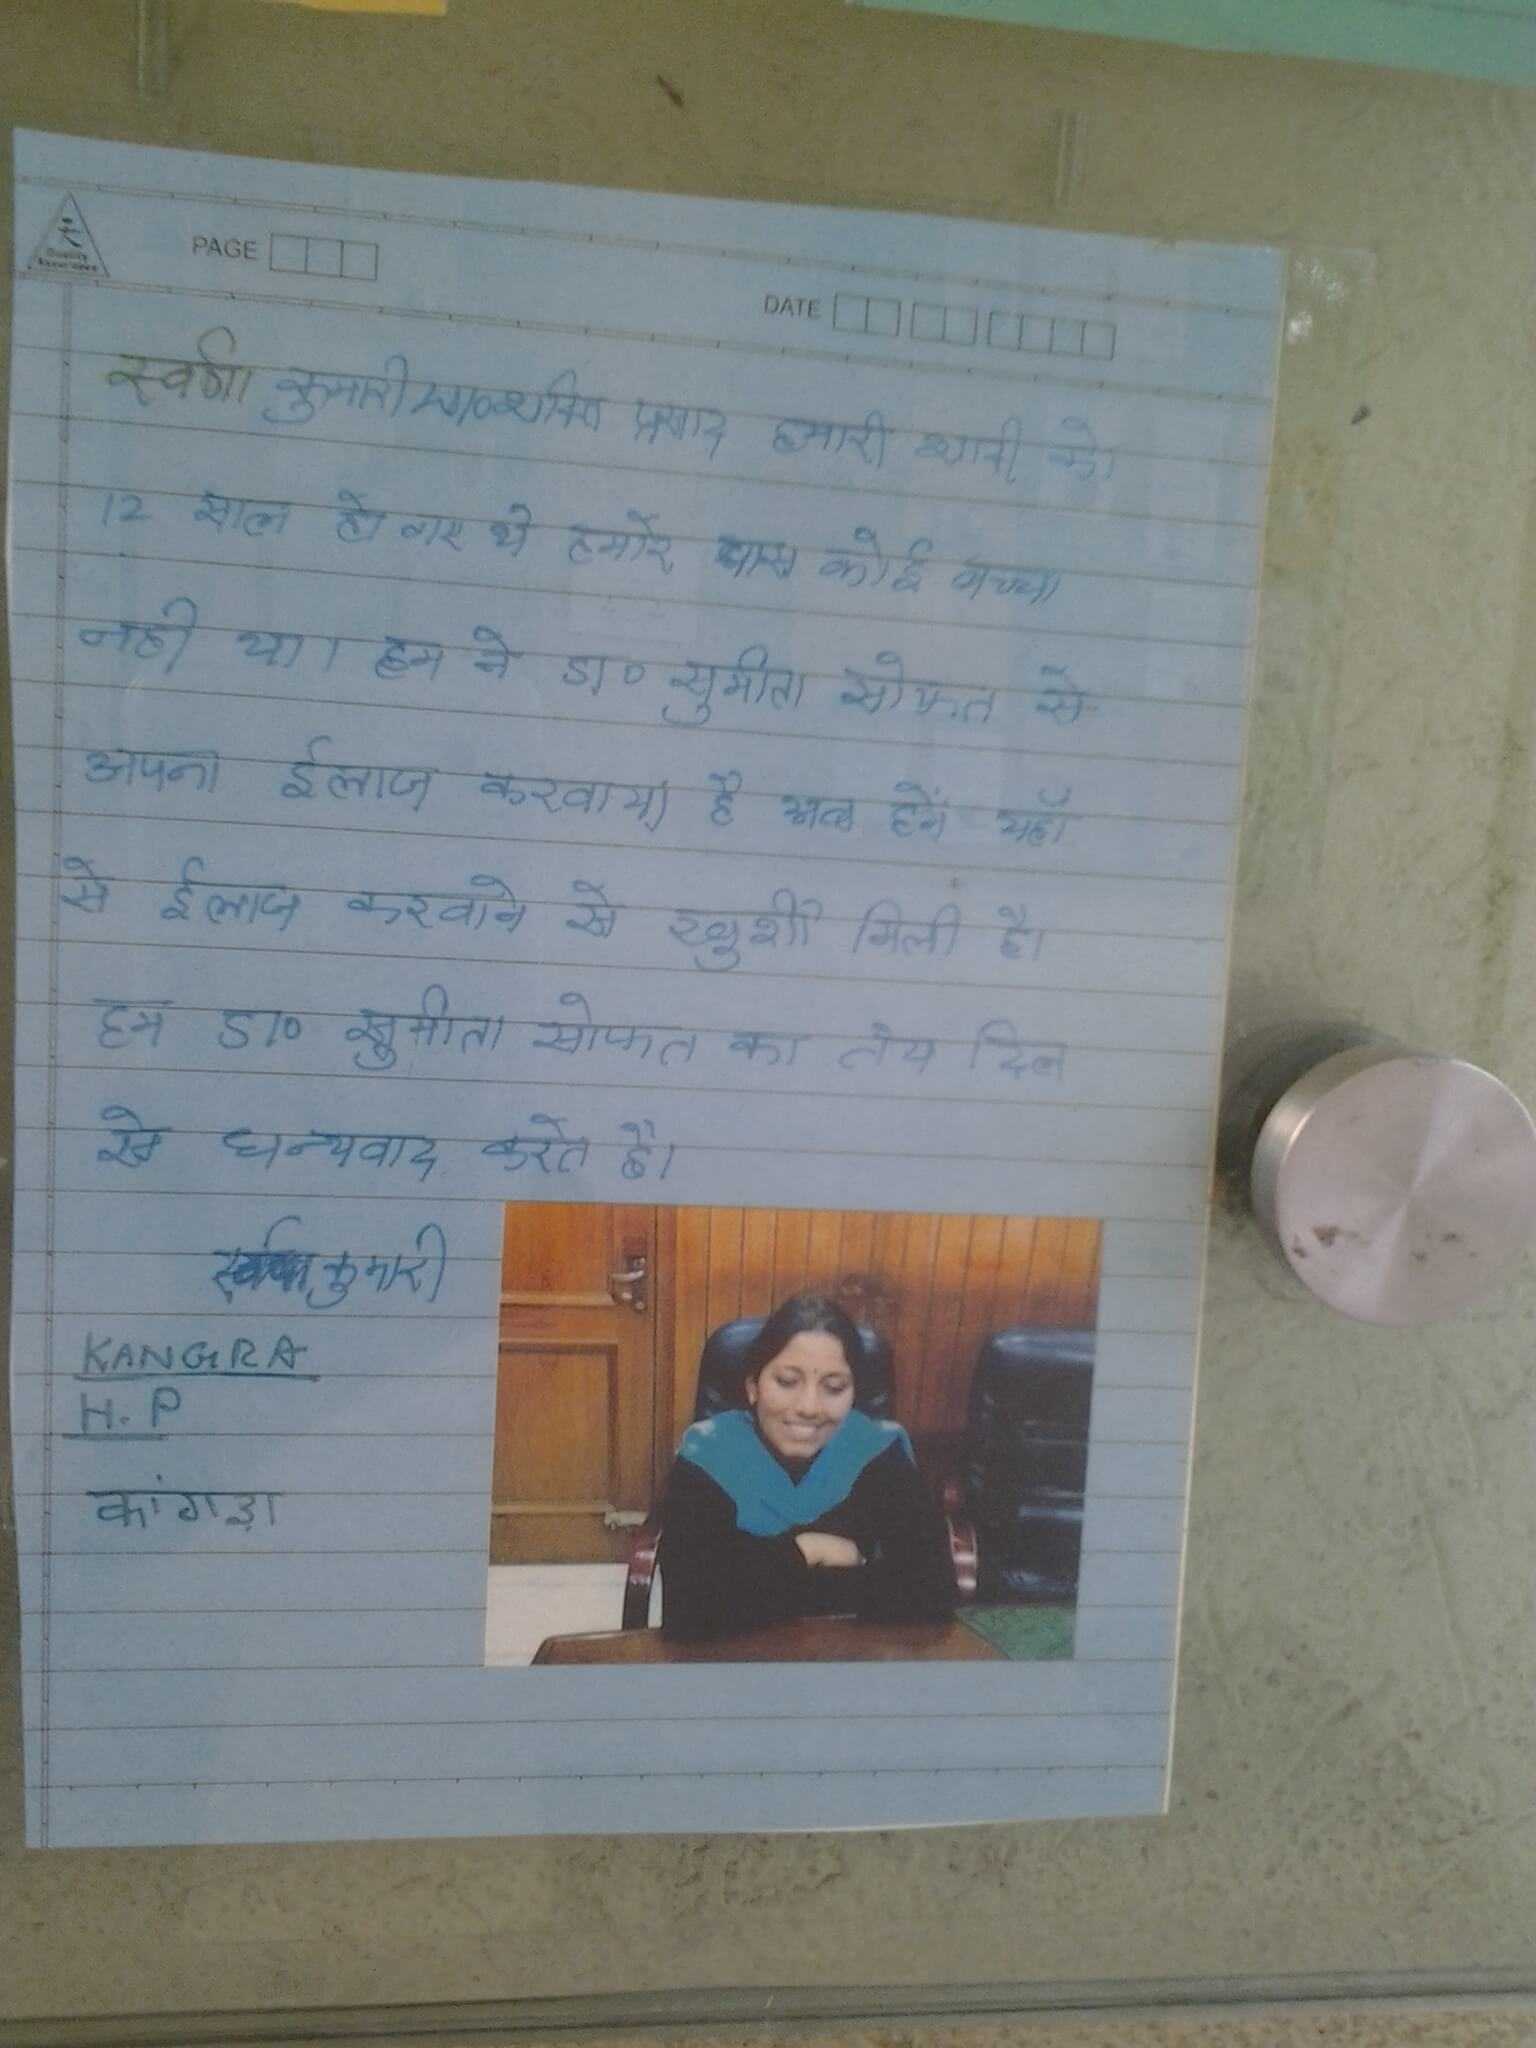 PAGE
DATE
स्वर्णा कुमारी प्रसाद हमारी शादी को
12 साल हो गए थे हमारे पास कोई बच्चा
नही था। हम ने डा० सुमीता सोफत से
अपना ईलाज करवाया है अब हमें यहाँ
से ईलाज करवाने से खुशी मिली है।
हम डा० सुमीता सोफत का तेय दिल
से धन्यवाद करते है।
कुमारी
KANGRA
H.P
कांगडा